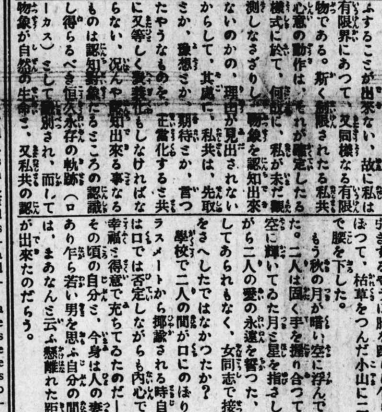 ふすることが出來ない、故に私は
有限界にあつて、又同樣なる有限
物である。斯く制限されたる私共
心意の動作は、それが確定したる
樣式に於て、何故に、私が未だ觀
測しなさざりし物象を認知出來
ないのかの、理由が見出されない
からして、其處に、私共は、先取
とか、豫想とか、期待とか、言つ
たやうなものを、正當化すると共
に又等しく義務化もしなければな
らない、況んや認知出來る事なる
ものは認知對象たるところの認識
し得らるべき恒久永存の軌跡(ロ
ーカス)として識別され、而して
物象が自然の生命で、又私共の認
ほつて、枯草をつんだ小山に二
で腰を下した。
もう秋の月が暗い空に浮んで
た。二人は固く手を握り合つて
空に輝いてる月と星を指さしな
がら二人の愛の永遠を誓つた、
してあられもなく、女同志で接
をさへしたではなかつたか?
學校で二人の間が口にのぼり
ラスメートから揶揄される時自
は口では否定しながらも内心で
幸福と得意で充ちてるのだ―
その頃の自分と、今身は人の妻
あり乍ら若い男を思ふ自分の間
は、まあなんと云ふ懸離れた距
が出來たのだらう。